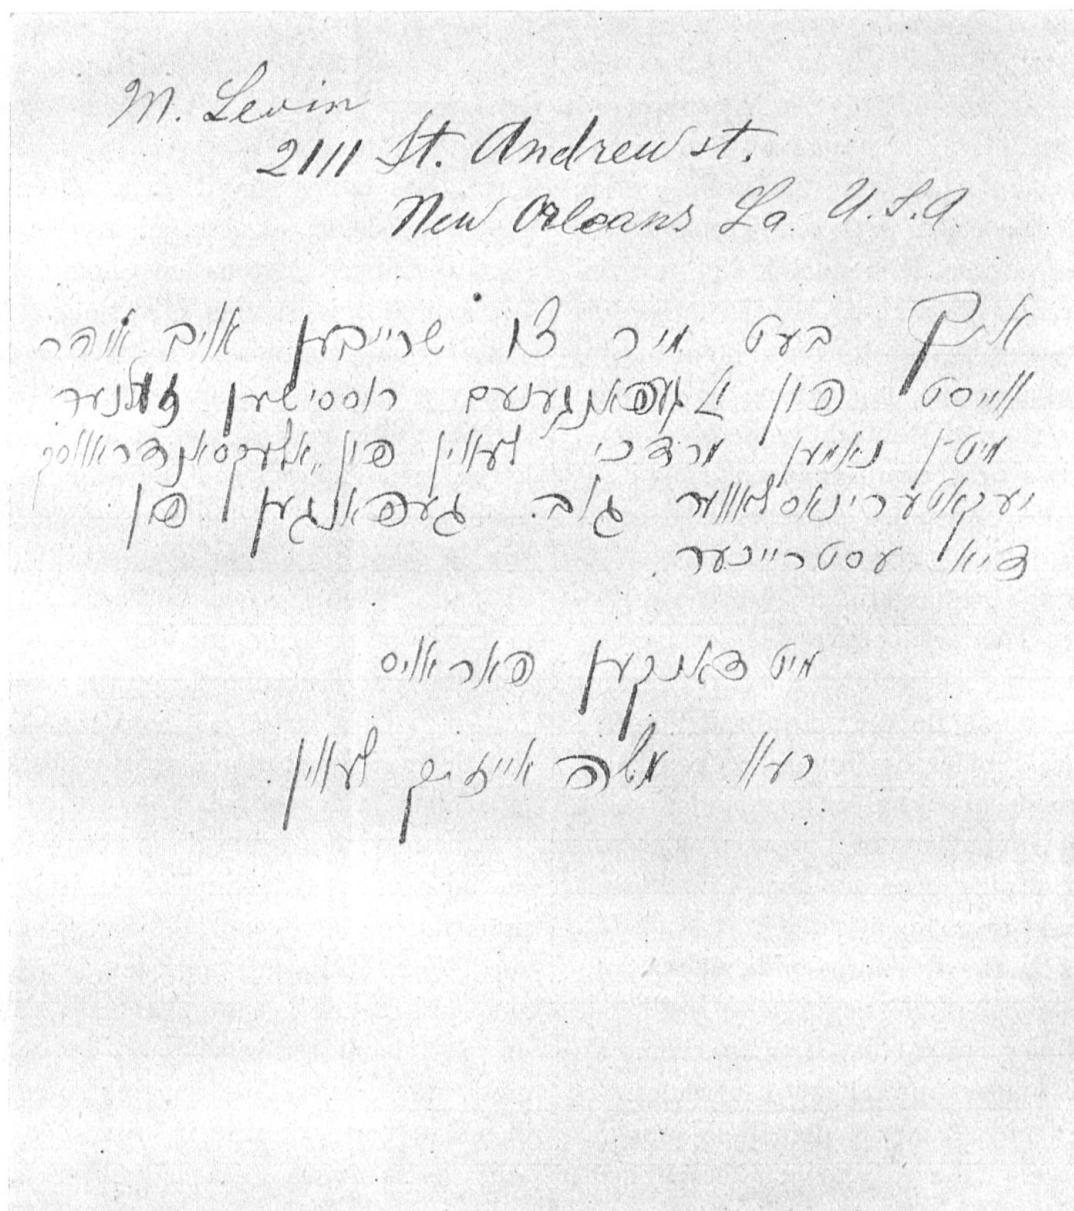 M. Levin
2111 St. Andrew st.
New Orleans La. U.S.A
איך בעט מיר צו שרייבען אויב איהר
ווייסט פון א געפאנגענעם רוססישען זעלנער
מיט'ן נאמען מרדכי לעווין פון אלעקסאנדראווסק
יעקאטערינאסלאווער גוב. געפאנגען פון
דיא עסטרייכער.
מיט דאנקען פאראויס
רעוו משה אייזיק לעווין